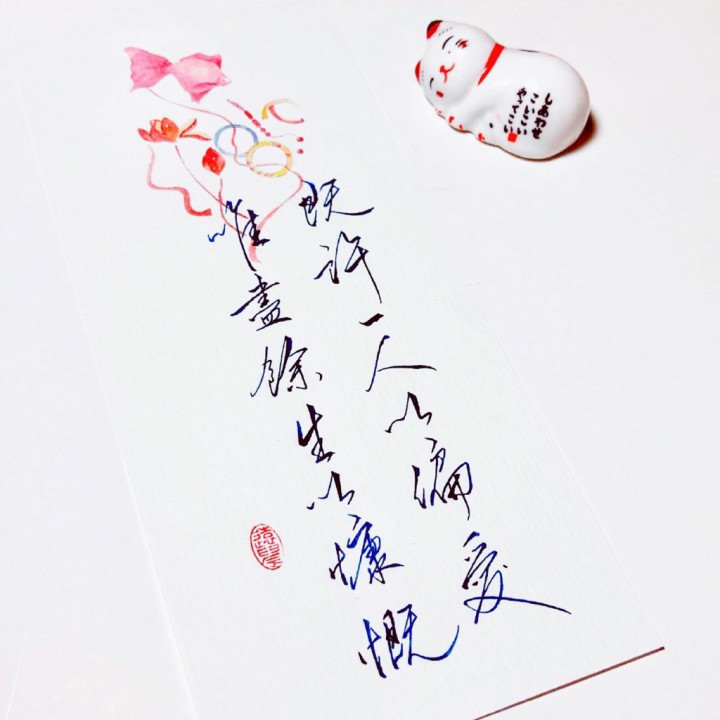 既许一人以偏爱
唯盡餘生以慷慨
しあわせ
こいこい
やってこい